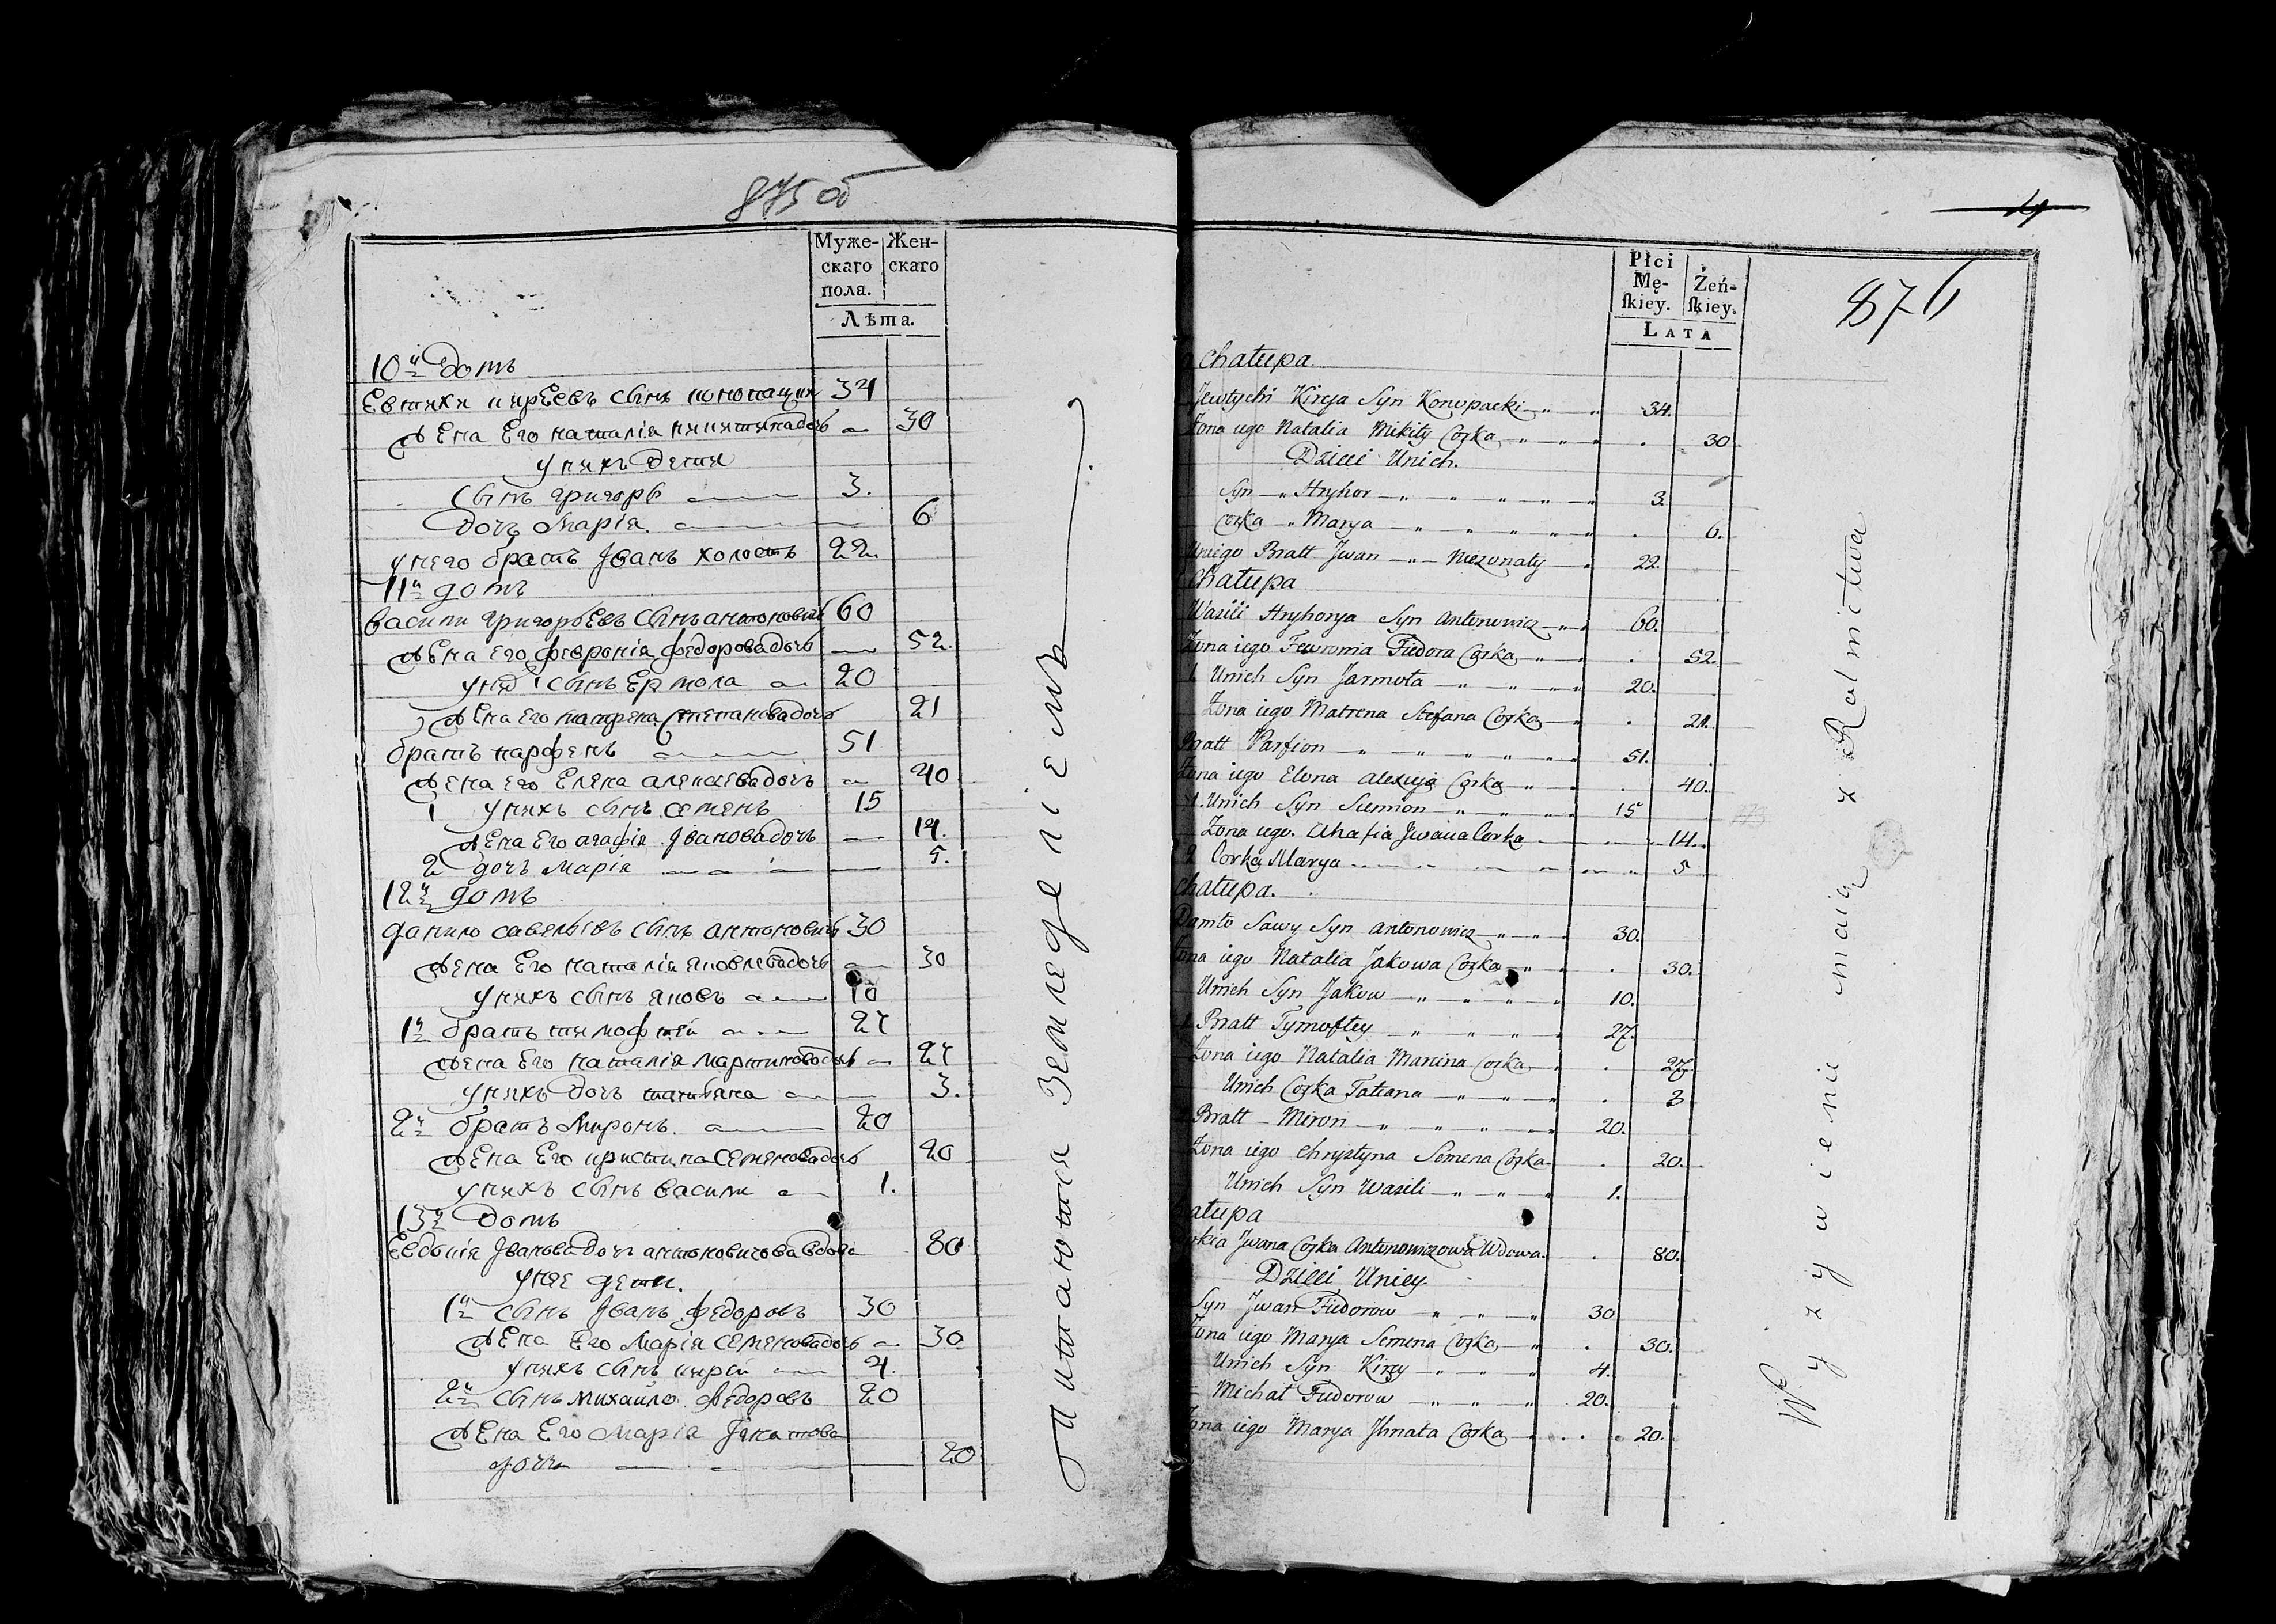 875 об
Муже-
скаго
пола.
Жен-
скаго
Лѣта.
10й домъ
Евтихи кирѣевъ сынъ конопацки 34
жена Его наталія никитинадочь 30
унихъ дети
сынъ григорь 3.
дочь Марія 6
унего братъ Jванъ холостъ 22.
11й домъ
васили григорьевъ сынъ антоновичь 60
жена Его февронія федоровадочь 52.
1 сынъ Ермола 20
жена Его матрена степановадочь 21
братъ парфенъ 51
жена Его Елена алексѣвадочь 40
1 унихъ сынъ семенъ 15
жена Его агафія Jвановадочь 14.
2 дочь Марія 5.
12й домъ
данило савекъевъ сынъ антоновичь 30
жена Его наталія яковлевадочь 30
унихъ сынъ яковъ 10
1й братъ тимофтей 27
жена Его наталія мартиновадочь 27
унихъ дочь татьяна 3.
2й братъ Миронъ. 20
жена Его кристина Семеновадочь 20
унихъ сынъ васили 1.
13й домъ
Евдокія Jвановадочь антоновичова вдова 80
унее дети.
1й сынъ Jванъ федоровъ 30
жена Его Марія семеновадочь 30
унихъ сынъ кирей 4.
2й сынъ михайло федоровъ 20
жена Его Марія Jгнатова
дочь 20
Питаются Земледелiемъ
14
876
Płci
Mę-
ſkiey.
Żeń-
ſkiey.
LATA
Chałupa.
Jewtychi Kireja Syn Konopacki 34.
Zona iego Natalia Mikity Corka 30
Dzieci Unich.
Syn Hryhor 3.
Corka Marya 6.
Uniego Bratt Jwan Niezonaty 22.
Chałupa
Wasili Hryhorya Syn Antonowicz 60.
Zona iego Fewronia Fiedora Corka 52.
1. Unich Syn Jarmoła 20.
Zona iego Matrena Stefana Corka 21.
Bratt Parfion 51.
Zona iego Elena Alexieja Corka 40.
1. Unich Syn Siemion 15
Zona iego. Ahafia Jwana Corka 14.
2 Corka Marya 5
Chałupa.
Daniło Sawy Syn Antonowicz 30.
Zona iego Natalia Jakowa Corka 30.
Unich Syn Jakow 10.
1. Bratt Tymoftey 27.
Zona iego Natalia Marcina Corka 27.
Unich Corka Tatiana 3
Bratt Miron 20.
Zona iego Chrystyna Semena Corka 20.
Unich Syn Wasili 1.
atupa
okia Jwana Corka Antonowiczowa Wdowa. 80.
Dzieci Uniey.
Syn Jwan Fiedorow 30
Zona iego Marya Semena Corka 30.
Unich Syn Kirey 4.
Michał Fiedorow 20.
Zona iego Marya Jhnata Corka 20.
Wyzywienie maią z Rolnictwa